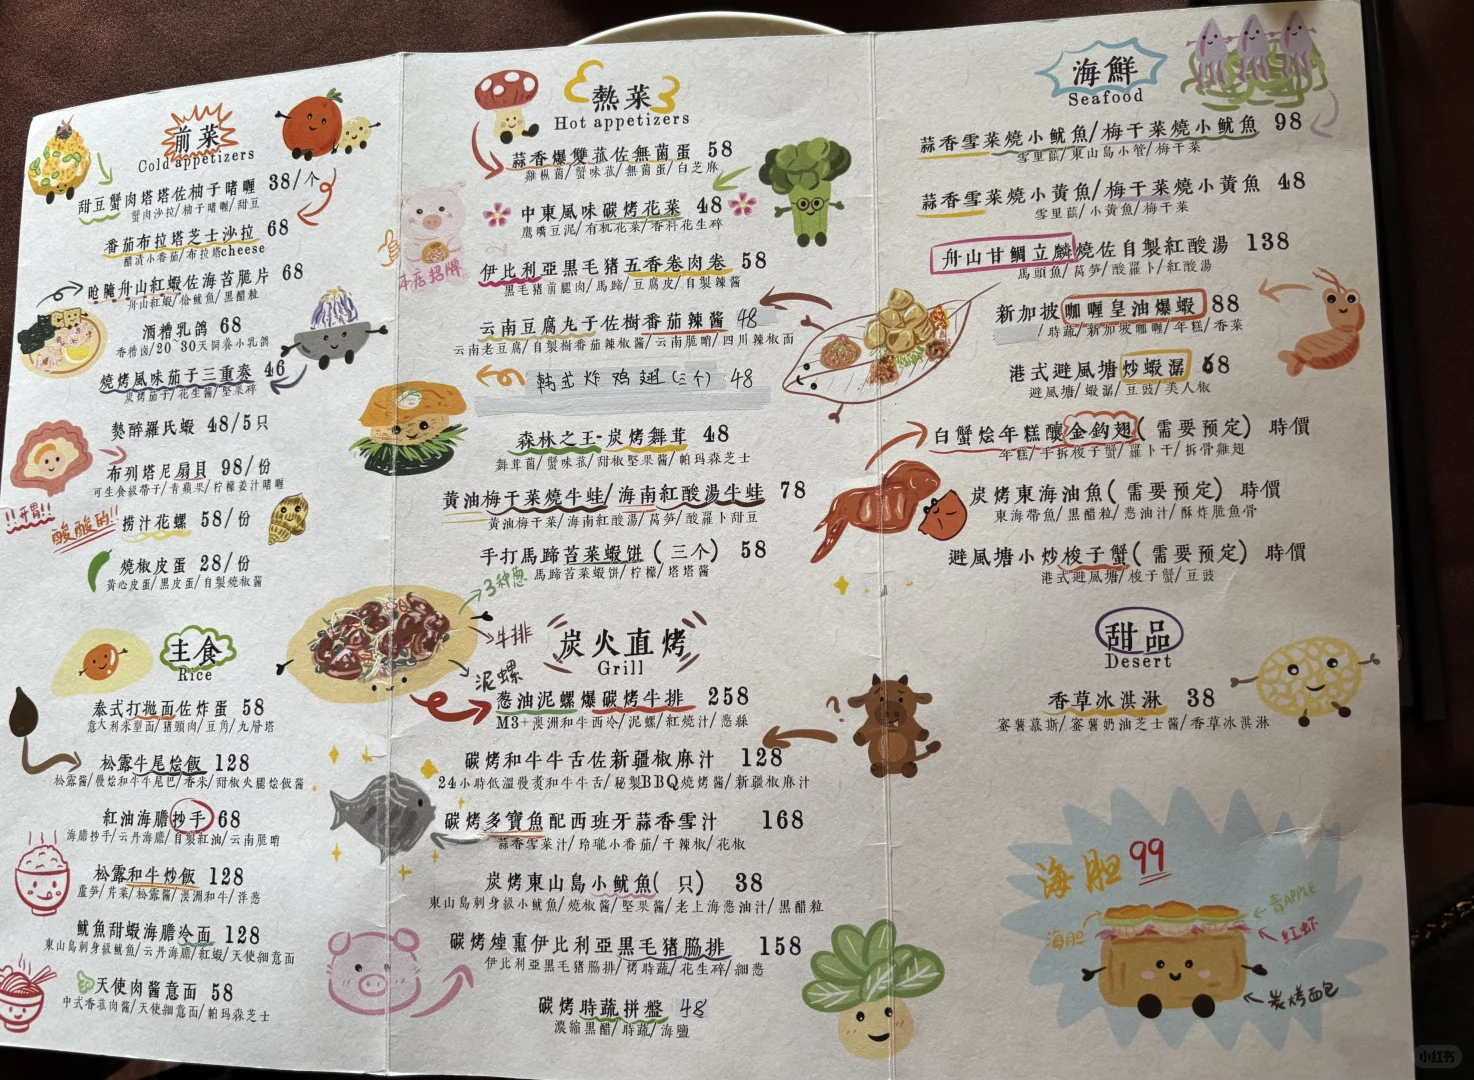 前菜
Cold appetizers
甜豆蟹肉塔塔佐柚子啫喱 38/个
蟹肉沙拉/柚子啫喱/甜豆
番茄布拉塔芝士沙拉 68
醋漬小番茄/布拉塔cheese
呛腌舟山紅蝦佐海苔脆片 68
舟山紅蝦/佮魷魚/黑醋粒
酒糟乳鸽 68
香糟卤/20~30天飼養小乳鸽
燒烤風味茄子三重奏 46
炭烤茄子/花生醬/堅果碎
熟醉羅氏蝦 48/5只
布列塔尼扇貝 98/份
可生食級带子/青蘋果/柠檬姜汁啫喱
!!开胃!!
酸酸的!!
捞汁花螺 58/份
燒椒皮蛋 28/份
黄心皮蛋/黑皮蛋/自製燒椒醬
主食
Rice
泰式打抛面佐炸蛋 58
意大利米型面/猪頸肉/豆角/九層塔
松露牛尾烩飯 128
松露醬/慢烩和牛牛尾巴/香米/甜椒火腿烩飯醬
紅油海膽抄手 68
海膽抄手/云丹海膽/自製紅油/云南脆哨
松露和牛炒飯 128
蘆笋/芹菜/松露醬/澳洲和牛/洋葱
魷魚甜蝦海膽冷面 128
東山島刺身級魷魚/云丹海膽/紅蝦/天使細意面
天使肉醬意面 58
中式香菇肉醬/天使細意面/帕玛森芝士
熱菜
Hot appetizers
蒜香爆雙菰佐無菌蛋 58
雞枞菌/蟹味菰/無菌蛋/白芝麻
中東風味碳烤花菜 48
鷹嘴豆泥/有机花菜/香料花生碎
伊比利亞黑毛猪五香卷肉卷 58
黑毛猪前腿肉/馬蹄/豆腐皮/自製辣醬
本店招牌
云南豆腐丸子佐樹番茄辣醬 48
云南老豆腐/自製樹番茄辣椒醬/云南脆哨/四川辣椒面
韩式炸鸡翅(三个) 48
森林之王-炭烤舞茸 48
舞茸菌/蟹味菰/甜椒堅果醬/帕玛森芝士
黄油梅干菜燒牛蛙/海南紅酸湯牛蛙 78
黄油梅干菜/海南紅酸湯/萵笋/酸蘿卜甜豆
手打馬蹄苔菜蝦饼(三个) 58
馬蹄苔菜蝦饼/柠檬/塔塔醬
3种葱
牛排
泥螺
炭火直烤
Grill
葱油泥螺爆碳烤牛排 258
M3+澳洲和牛西冷/泥螺/紅燒汁/葱絲
碳烤和牛牛舌佐新疆椒麻汁 128
24小時低温慢煮和牛牛舌/秘製BBQ燒烤醬/新疆椒麻汁
碳烤多寶魚配西班牙蒜香雪汁 168
蒜香雪菜汁/玲瓏小番茄/干辣椒/花椒
炭烤東山島小魷魚( 只) 38
東山島刺身級小魷魚/燒椒醬/堅果醬/老上海葱油汁/黑醋粒
碳烤煙熏伊比利亞黑毛猪脇排 158
伊比利亞黑毛猪脇排/烤時蔬/花生碎/細葱
碳烤時蔬拼盤 48
濃縮黑醋/時蔬/海鹽
海鮮
Seafood
蒜香雪菜燒小魷魚/梅干菜燒小魷魚 98
雪里蕻/東山島小管/梅干菜
蒜香雪菜燒小黄魚/梅干菜燒小黄魚 48
雪里蕻/小黄魚/梅干菜
舟山甘鯛立鱗燒佐自製紅酸湯 138
馬頭魚/萵笋/酸蘿卜/紅酸湯
新加坡咖喱皇油爆蝦 88
/時蔬/新加坡咖喱/年糕/香菜
港式避風塘炒蝦潺 68
避風塘/蝦潺/豆豉/美人椒
白蟹烩年糕釀金鈎翅(需要预定) 時價
年糕/手拆梭子蟹/蘿卜干/拆骨雞翅
炭烤東海油魚(需要预定) 時價
東海帶魚/黑醋粒/葱油汁/酥炸脆魚骨
避風塘小炒梭子蟹(需要预定) 時價
港式避風塘/梭子蟹/豆豉
甜品
Desert
香草冰淇淋 38
蜜薯慕斯/蜜薯奶油芝士醬/香草冰淇淋
海胆 99
青APPLE
海胆
红虾
炭烤面包
?
小红书